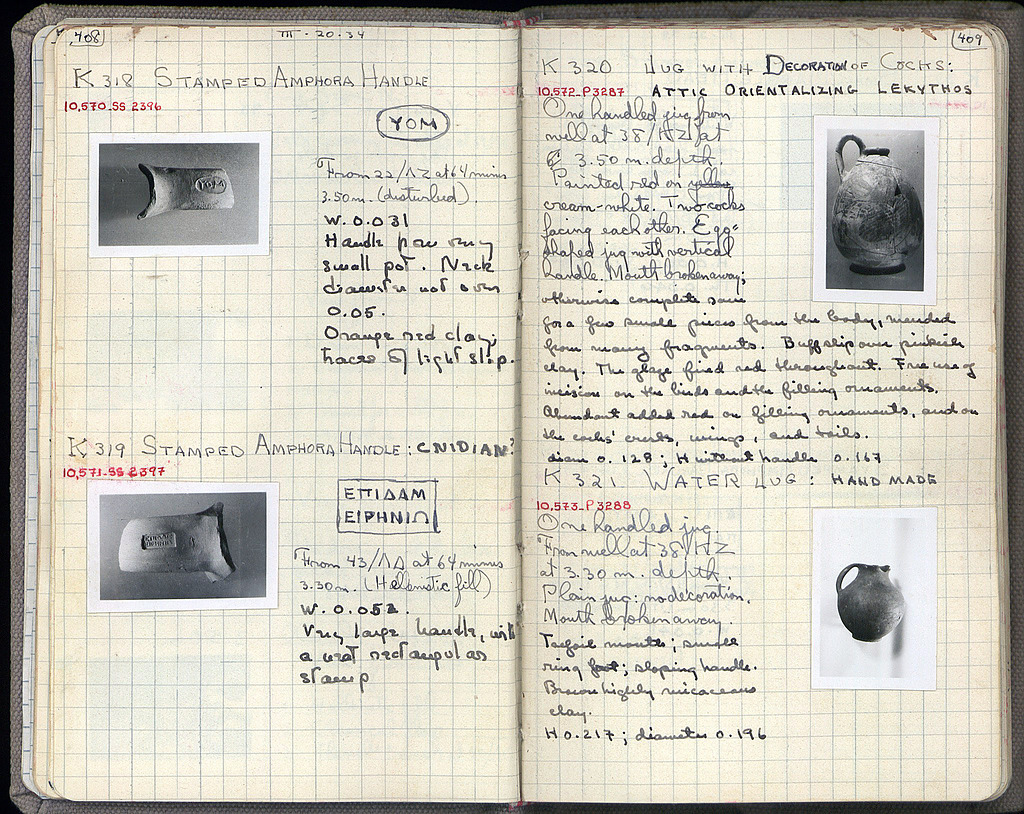 408
III · 20 · 34
K 318 STAMPED AMPHORA HANDLE
10,570-SS 2396
ΥΟΜ
From 22/ΛΖ at 64 minus
3.50 m. (disturbed).
W. 0.031
Handle from very
small pot. Neck
diameter not over
0.05.
Orange red clay;
traces of light slip.
K 319 STAMPED AMPHORA HANDLE: CNIDIAN?
10,571-SS 2397
ΕΠΙΔΑΜ
ΕΙΡΗΝΙΩ
From 43/ΛΔ at 64 minus
3.30 m. (Hellenistic fill)
W. 0.052.
Very large handle, with
a neat rectangular
stamp
409
K 320 JUG WITH DECORATION OF COCKS:
10,572-P3287 ATTIC ORIENTALIZING LEKYTHOS
One handled jug from
well at 38/ΗΖ at
3.50 m. depth.
Painted red on yellow
cream-white. Two cocks
facing each other. Egg=
shaped jug with vertical
handle. Mouth broken away;
otherwise complete save
for a few small pieces from the body, mended
from many fragments. Buff slip over pinkish
clay. The glaze fired red throughout. Free use of
incision on the birds and the filling ornaments.
Abundant added red on filling ornaments, and on
the cocks' crests, wings, and tails.
diam 0.128; H without handle 0.167
K 321 WATER JUG: HAND MADE
10,573-P3288
One handled jug.
From well at 38/ΗΖ
at 3.30 m. depth.
Plain jug: no decoration.
Mouth broken away.
Trefoil mouth; small
ring foot; sloping handle.
Brown highly micaceous
clay.
H 0.217; diameter 0.196